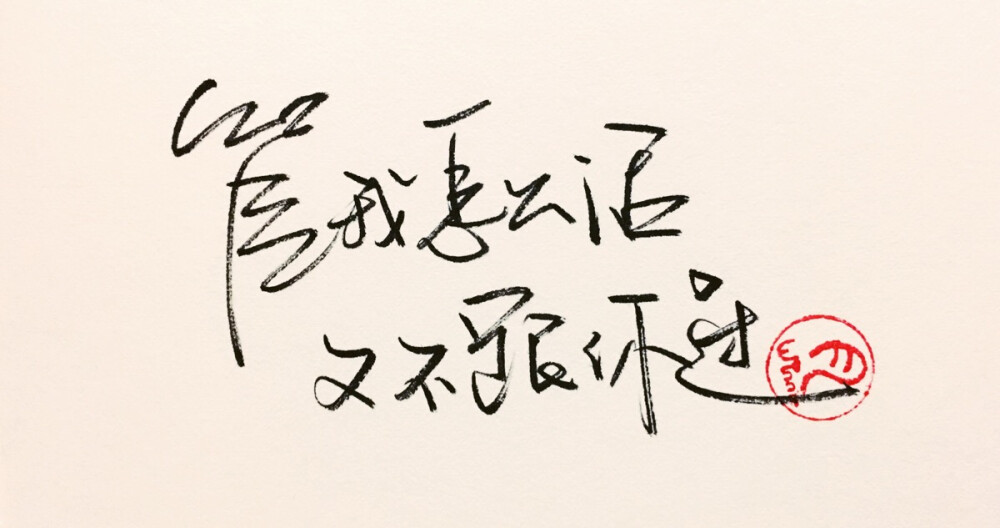 管我怎么活
又不跟你过